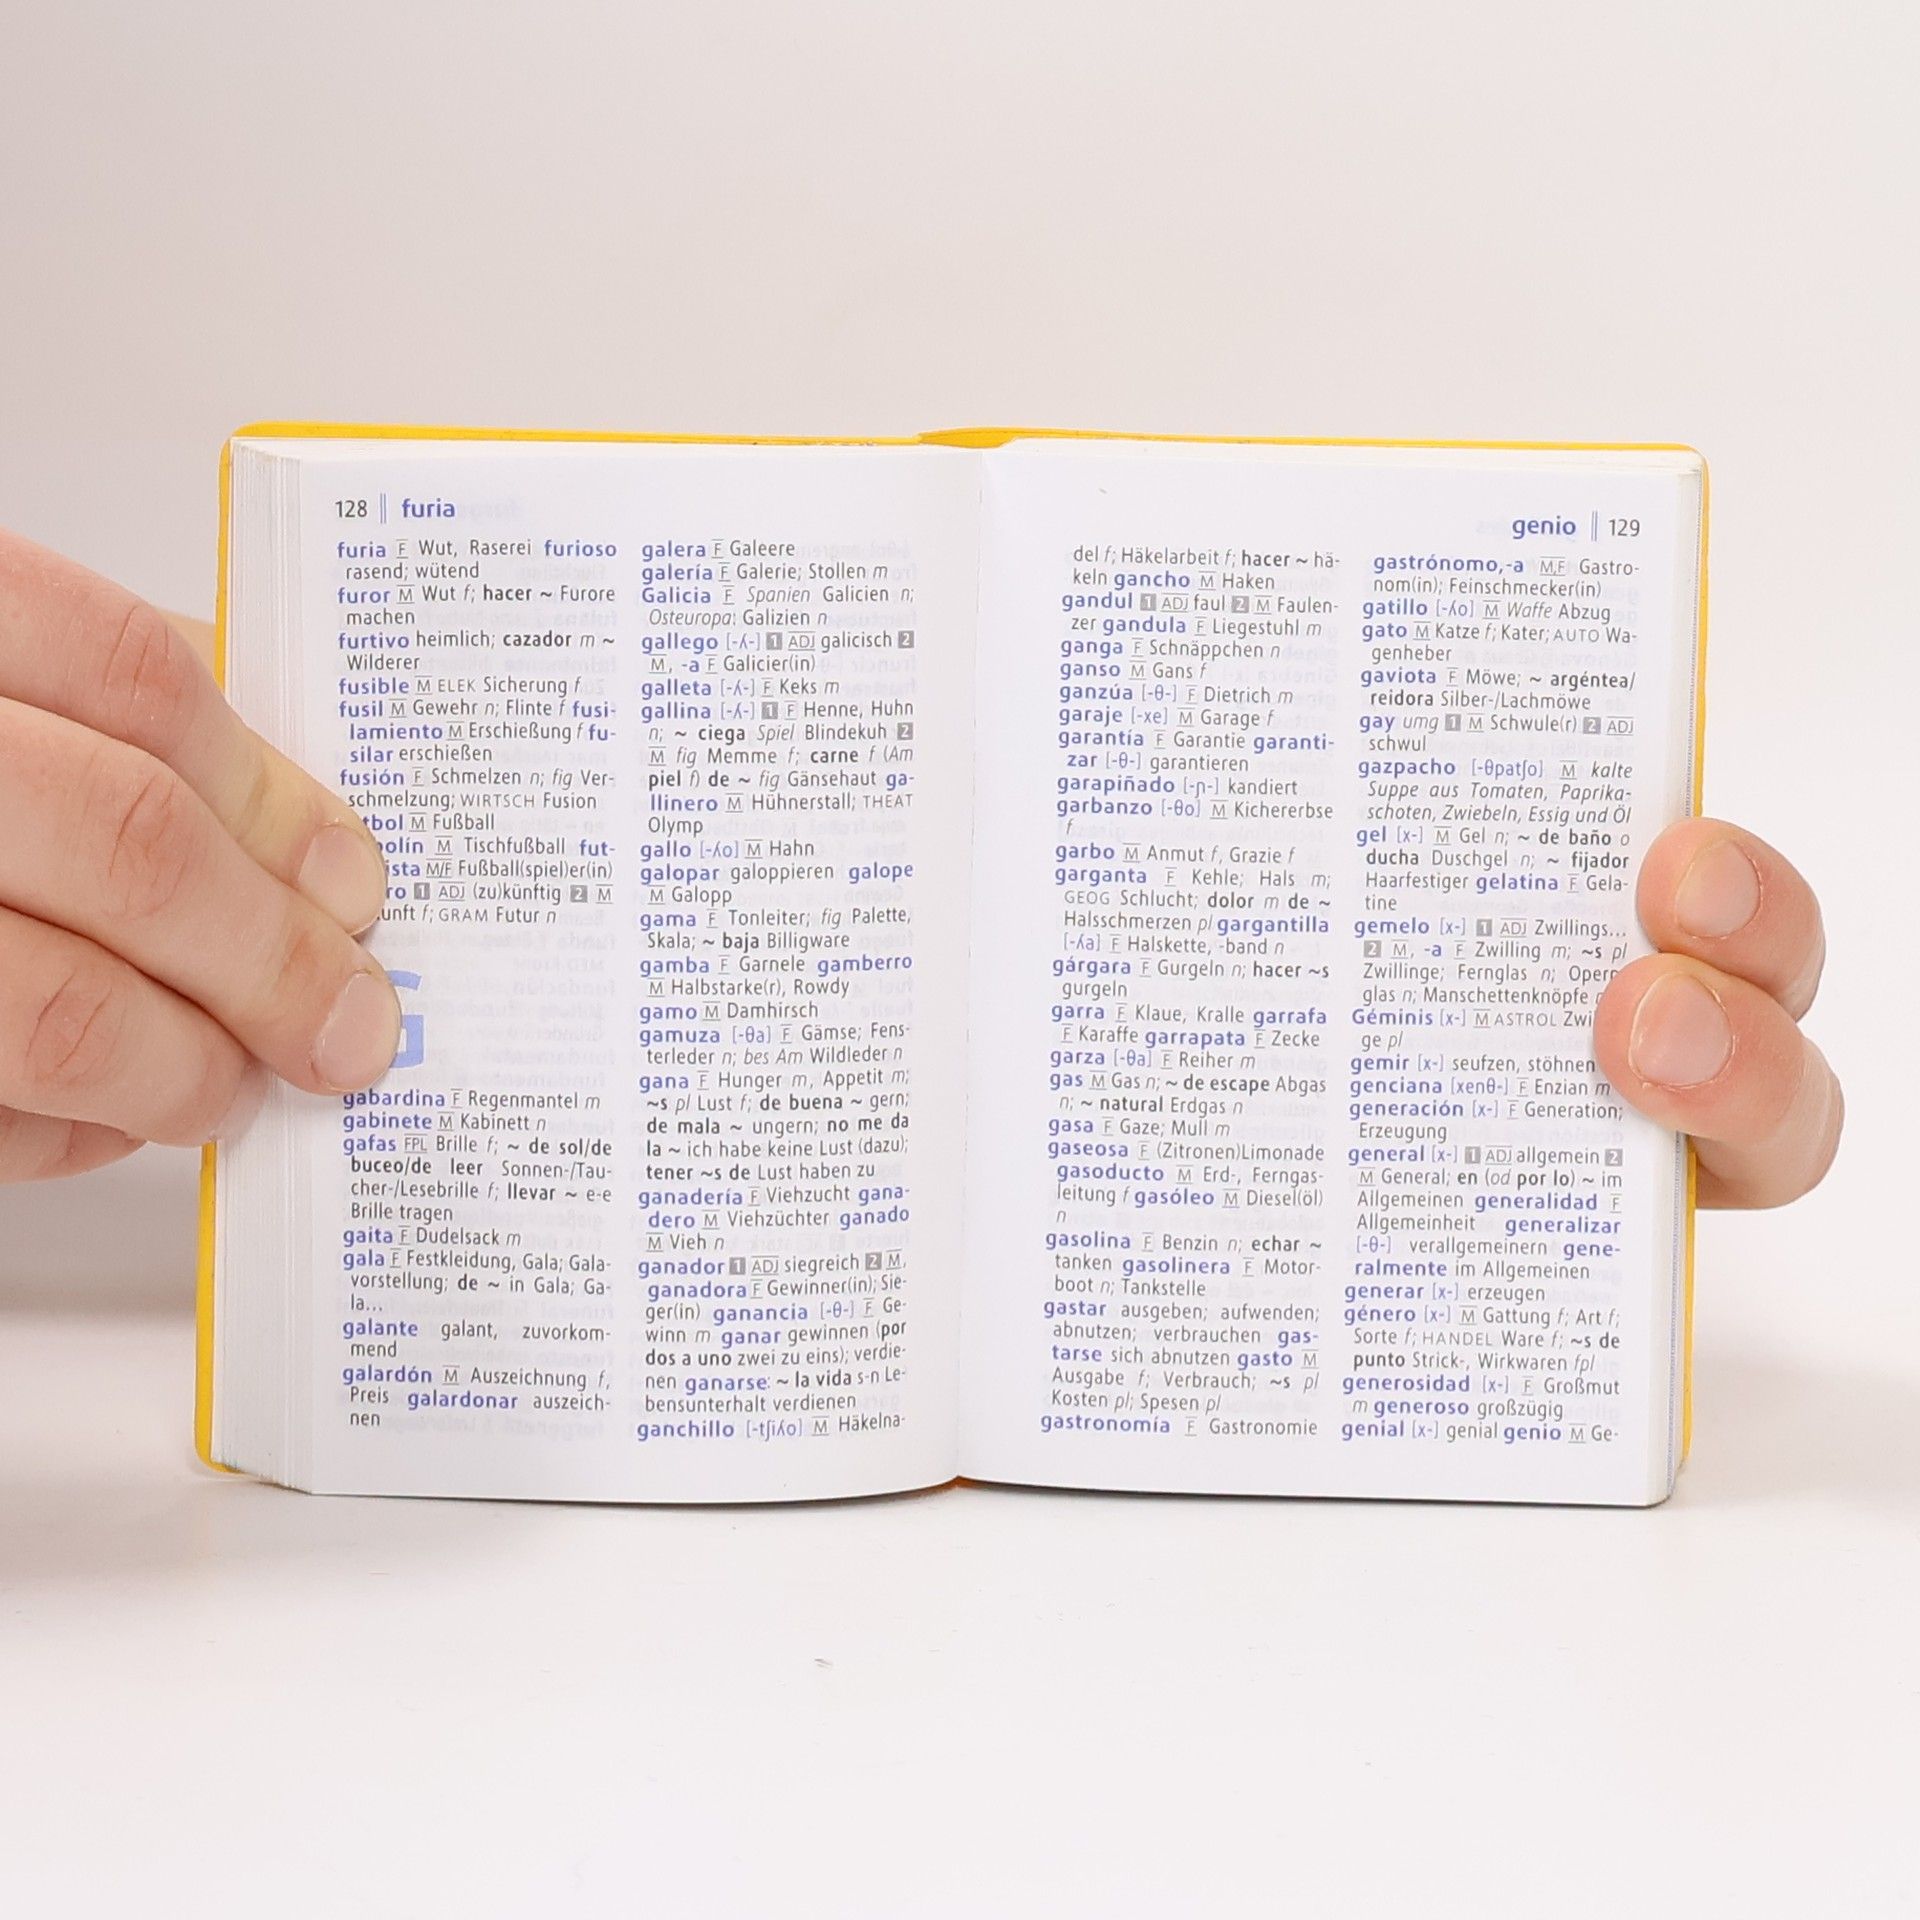 128 furia
furia F Wut, Raserei furioso
rasend; wütend
furor M Wut f; hacer ~ Furore
machen
furtivo heimlich; cazador m ~
Wilderer
fusible M ELEK Sicherung f
fusil M Gewehr n; Flinte f fusi-
lamiento M Erschießung f fu-
silar erschießen
fusión F Schmelzen n; fig Ver-
schmelzung; WIRTSCH Fusion
tbol M Fußball
olín M Tischfußball fut-
ista M/F Fußball(spiel)er(in)
ro 1 ADJ (zu)künftig 2 M
unft f; GRAM Futur n
G
gabardina F Regenmantel m
gabinete M Kabinett n
gafas FPL Brille f; ~ de sol/de
buceo/de leer Sonnen-/Tau-
cher-/Lesebrille f; llevar ~ e-e
Brille tragen
gaita F Dudelsack m
gala F Festkleidung, Gala; Gala-
vorstellung; de ~ in Gala; Ga-
la...
galante galant, zuvorkom-
mend
galardón M Auszeichnung f,
Preis galardonar auszeich-
nen
galera F Galeere
galería F Galerie; Stollen m
Galicia F Spanien Galicien n;
Osteuropa: Galizien n
gallego [-ʎ-] 1 ADJ galicisch 2
M, -a F Galicier(in)
galleta [-ʎ-] F Keks m
gallina [-ʎ-] 1 F Henne, Huhn
n; ~ ciega Spiel Blindekuh 2
M fig Memme f; carne f (Am
piel f) de ~ fig Gänsehaut ga-
llinero M Hühnerstall; THEAT
Olymp
gallo [-ʎo] M Hahn
galopar galoppieren galope
M Galopp
gama F Tonleiter; fig Palette,
Skala; ~ baja Billigware
gamba F Garnele gamberro
M Halbstarke(r), Rowdy
gamo M Damhirsch
gamuza [-θa] F Gämse; Fens-
terleder n; bes Am Wildleder n
gana F Hunger m, Appetit m;
~s pl Lust f; de buena ~ gern;
de mala ~ ungern; no me da
la ~ ich habe keine Lust (dazu);
tener ~s de Lust haben zu
ganadería F Viehzucht gana-
dero M Viehzüchter ganado
M Vieh n
ganador 1 ADJ siegreich 2 M,
ganadora F Gewinner(in); Sie-
ger(in) ganancia [-θ-] F Ge-
winn m ganar gewinnen (por
dos a uno zwei zu eins); verdie-
nen ganarse: ~ la vida s-n Le-
bensunterhalt verdienen
ganchillo [-tʃiʎo] M Häkelna-
genio 129
del f; Häkelarbeit f; hacer ~ hä-
keln gancho M Haken
gandul 1 ADJ faul 2 M Faulen-
zer gandula F Liegestuhl m
ganga F Schnäppchen n
ganso M Gans f
ganzúa [-θ-] F Dietrich m
garaje [-xe] M Garage f
garantía F Garantie garanti-
zar [-θ-] garantieren
garapiñado [-ɲ-] kandiert
garbanzo [-θo] M Kichererbse
f
garbo M Anmut f, Grazie f
garganta F Kehle; Hals m;
GEOG Schlucht; dolor m de ~
Halsschmerzen pl gargantilla
[-ʎa] F Halskette, -band n
gárgara F Gurgeln n; hacer ~s
gurgeln
garra F Klaue, Kralle garrafa
F Karaffe garrapata F Zecke
garza [-θa] F Reiher m
gas M Gas n; ~ de escape Abgas
n; ~ natural Erdgas n
gasa F Gaze; Mull m
gaseosa F (Zitronen)Limonade
gasoducto M Erd-, Ferngas-
leitung f gasóleo M Diesel(öl)
n
gasolina F Benzin n; echar ~
tanken gasolinera F Motor-
boot n; Tankstelle
gastar ausgeben; aufwenden;
abnutzen; verbrauchen gas-
tarse sich abnutzen gasto M
Ausgabe f; Verbrauch; ~s pl
Kosten pl; Spesen pl
gastronomía F Gastronomie
gastrónomo,-a M,F Gastro-
nom(in); Feinschmecker(in)
gatillo [-ʎo] M Waffe Abzug
gato M Katze f; Kater; AUTO Wa-
genheber
gaviota F Möwe; ~ argéntea/
reidora Silber-/Lachmöwe
gay umg 1 M Schwule(r) 2 ADJ
schwul
gazpacho [-θpatʃo] M kalte
Suppe aus Tomaten, Paprika-
schoten, Zwiebeln, Essig und Öl
gel [x-] M Gel n; ~ de baño o
ducha Duschgel n; ~ fijador
Haarfestiger gelatina F Gela-
tine
gemelo [x-] 1 ADJ Zwillings...
2 M, -a F Zwilling m; ~s pl
Zwillinge; Fernglas n; Opern
glas n; Manschettenknöpfe
Géminis [x-] M ASTROL Zwi
ge pl
gemir [x-] seufzen, stöhnen
genciana [xenθ-] F Enzian m
generación [x-] F Generation;
Erzeugung
general [x-] 1 ADJ allgemein 2
M General; en (od por lo) ~ im
Allgemeinen generalidad F
Allgemeinheit generalizar
[-θ-] verallgemeinern gene-
ralmente im Allgemeinen
generar [x-] erzeugen
género [x-] M Gattung f; Art f;
Sorte f; HANDEL Ware f; ~s de
punto Strick-, Wirkwaren fpl
generosidad [x-] F Großmut
m generoso großzügig
genial [x-] genial genio M Ge-